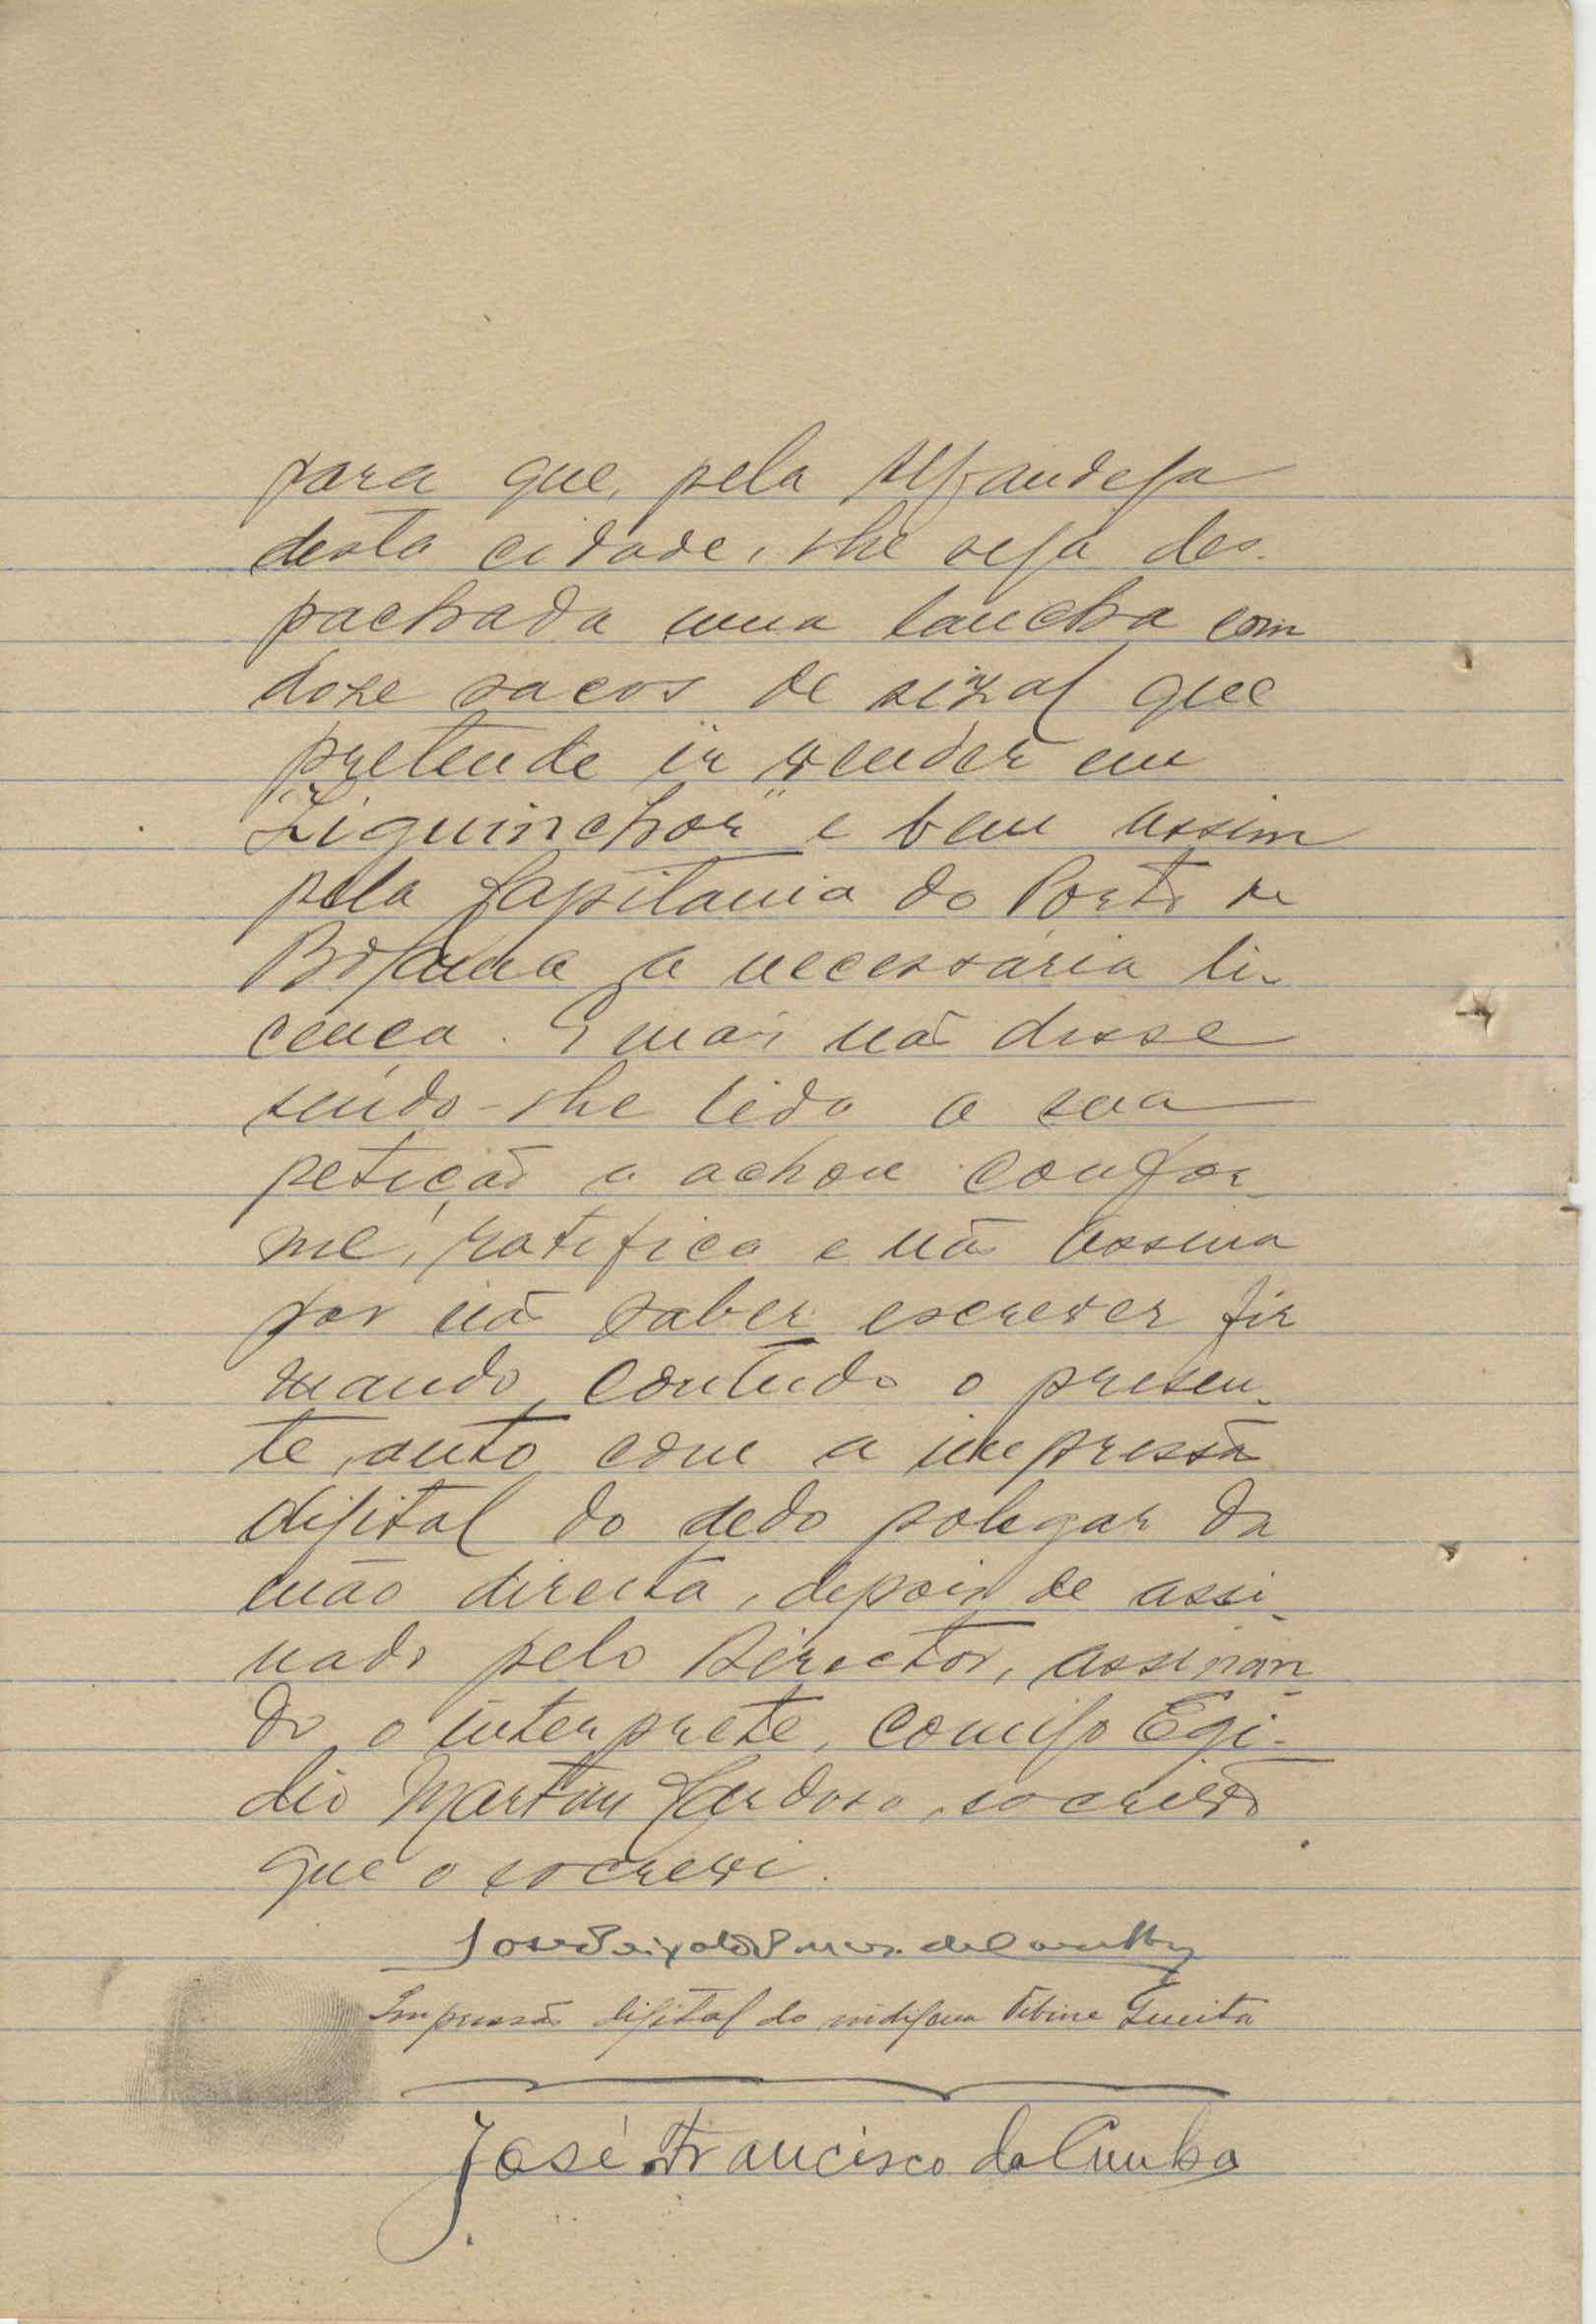 para que, pela Alfandega
desta cidade, lhe seja des-
pachada uma lancha com
doze sacos de sizal que
pretende ir vender em
"Ziguinchor" e bem assim
pela Capitania do Porto de
Bolama a necessária li-
cença. E mais não disse
sendo-lhe lida a sua
petição a achou confor-
me, ratifica e não assina
por não saber escrever fir
mando, contudo o presen-
te auto com a impressão
digital do dedo polegar da
mão direita, depois de assi-
nado pelo Director, assinan-
do o interprete, comigo Egi-
dio Martins Cardoso, escrivão
que o escrevi.
José Peixoto
Impressão digital do indigena
José Francisco da Cunha